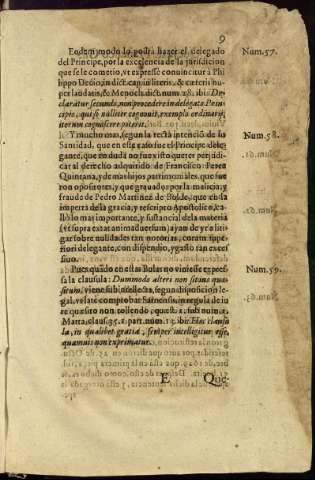 9
Eodem modo lo podrá hazer el delegado
del Principe, por la excelencia de la jurisdicion
que se le cometio, vt expressè conuincitur à Phi-
lippo Decio, in dict. cap. in literis, & cæteris nu-
per laudatis, & Menoch. dict. num. 28. ibi: De-
claratur secundo, non procedere in delegato Prin-
cipis, qui si nulliter cognouit, exemplo ordinarij,
iterum cognoscere poterit.
Num. 57.
Y mucho mas, segun la recta intenciō de su
Santidad, que en este caso fue el Principe dele-
gante, que in dubio no fue visto querer perjudi-
car al derecho adquirido de Francisco Perez
Quintana, y de mas hijos patrimoniales, que fue
ron opositores, y que grauados por la malicia, y
fraude de Pedro Martinez de callò en la
impetra de la gracia, y rescripto Apostolico,
lo mas importante, y sustancial de la materia
(vt supra exat animaduersum) ayan de yr a liti-
gar sobre nulidades tan notorias, coram supe-
riori delegante, con dispendio, y gasto tan ex-
cessiuo.
Num. 58.
Pues quādo en estas Bulas no viniesse expres-
sa la clausula: Dummodo alteri non sit ius quæ-
situm, viene subintellecta, segun disposicion le-
gal, velatè comprobat in regula de iu
re quæsito non tollendo, quæst. 1. sub num. 2.
Marta, claus. 95. 1. part. num. 13. ibi: Hæc clausu-
la, in qualibet gratia, semper intelligitur esse,
quamuis non exprimatur.
Num. 59.
E
Que